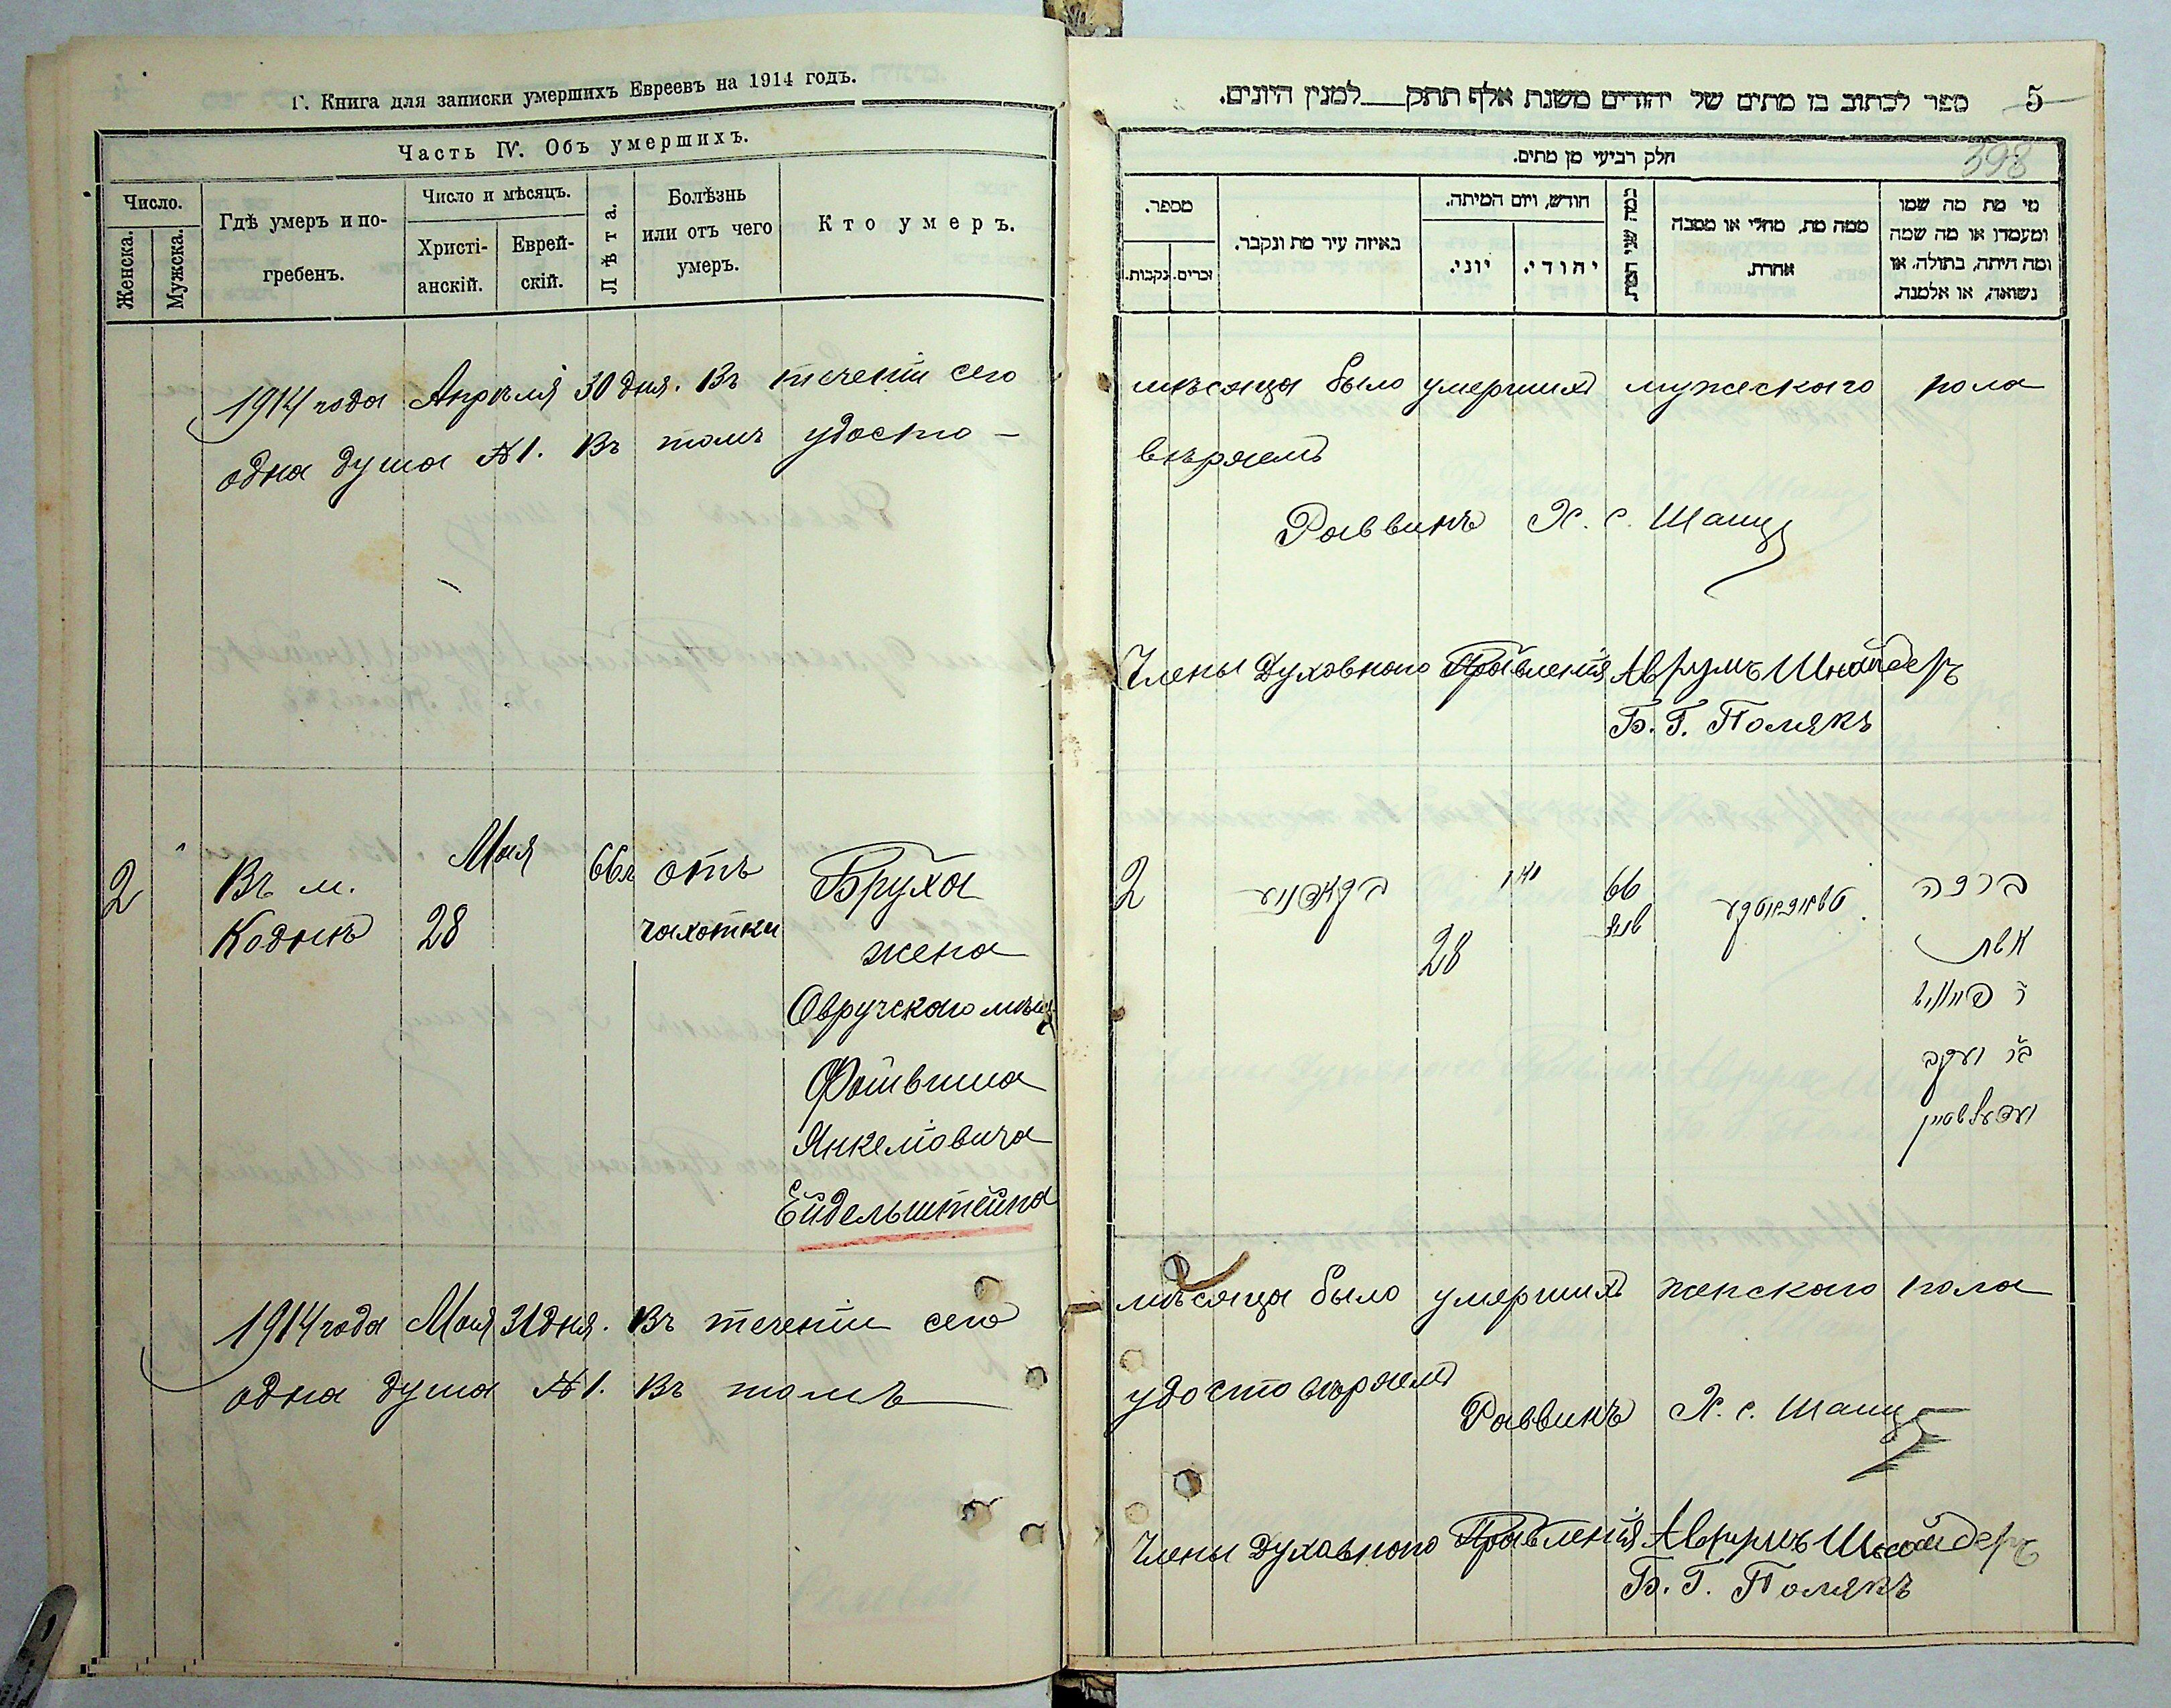 Г. Книга для записки умершихъ Евреевъ на 1914 годъ.
Часть IV. Объ умершихъ.
Число.
Женска.
Мужска.
Гдѣ умеръ и по-
гребенъ.
Число и мѣсяцъ.
Христі-
анскій.
Еврей-
скій.
Лѣта.
Болѣзнь
или отъ чего
умеръ.
Кто умеръ.
1914 года Апрѣля 30 дня. Въ теченіи сего
одна душа №1. Въ томъ удосто-
2
Въ м.
Коднѣ
Мая
28
66л
отъ
чахотки
Бруха
жена
Овручского мѣщ
Фойвиша
Янкеліовича
Ейдельштейна
1914 года Мая 31 дня. Въ теченіи сего
одна душа №1. Въ томъ
ספר לכתוב בו מתים של יהודים משנת אלף תתק למנין היונים.
5
398
חלק רביעי מן מתים.
מספר.
נקבות.
זכרים.
באיזה עיר מת ונקבר.
חודש, ויום המיתה.
יוני.
יהודי.
כמה שני המת.
ממה מת, מחלי או מסבה
אחרת.
מי מת מה שמו
ומעמדו או מה שמה
ומה היתה, בתולה, או
נשואה, או אלמנה.
мѣсяца было умершихъ мужескаго пола
вѣряемъ
Раввинъ Х. С. Шацъ
Члены Духовного Правленія Аврумъ Шнайдеръ
Б. Г. Полякъ
2
מאי
28
66
שנה
ברכה
אשת
ר' פייוויש
ב"ר יעקב
мѣсяца было умершихъ женскаго пола
удостовѣряемъ
Раввинъ Х. С. Шацъ
Члены Духовного Правленія Аврумъ Шнайдеръ
Б. Г. Полякъ